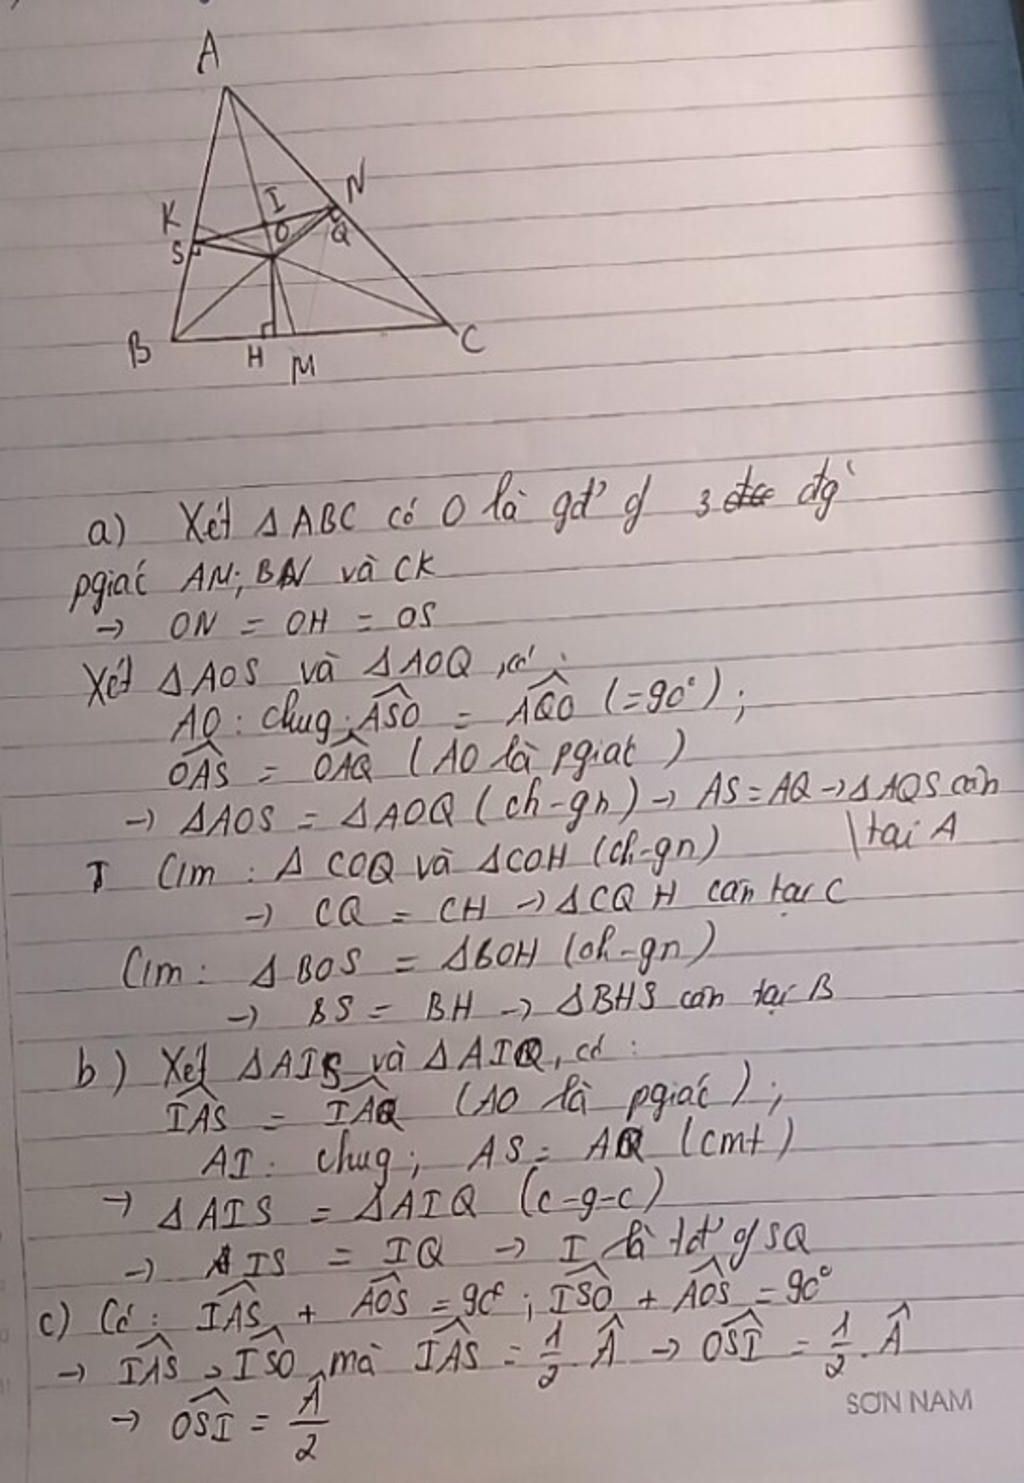 A
K
I
N
S
O
Q
B
H
M
C
a) Xét ΔABC có O là gđ' g/ 3 đg`
pgiác AM; BN và CK
→ ON = OH = OS
Xét ΔAOS và ΔAOQ, có:
AO: chug; ASO^ = AQO^ (=90°);
OAS^ = OAQ^ (AO là pgiac)
→ ΔAOS = ΔAOQ (ch-gn) → AS = AQ → ΔAQS cân
tại A
C/m: Δ COQ và ΔCOH (ch-gn)
→ CQ = CH → ΔCQH cân tại C
C/m: ΔBOS = ΔBOH (ch-gn)
→ BS = BH → ΔBHS cân tại B
b) Xét ΔAIS và ΔAIQ, có:
IAS^ = IAQ^ (AO là pgiác);
AI: chug; AS = AQ (cmt)
→ ΔAIS = ΔAIQ (c-g-c)
→ IS = IQ → I là tđ' g/ SQ
c) Có: IAS^ + AOS^ = 90°; ISO^ + AOS^ = 90°
→ IAS^ = ISO^ mà IAS^ = 1/2 . A^ → OSI^ = 1/2 . A^
→ OSI^ = A^/2
SƠN NAM